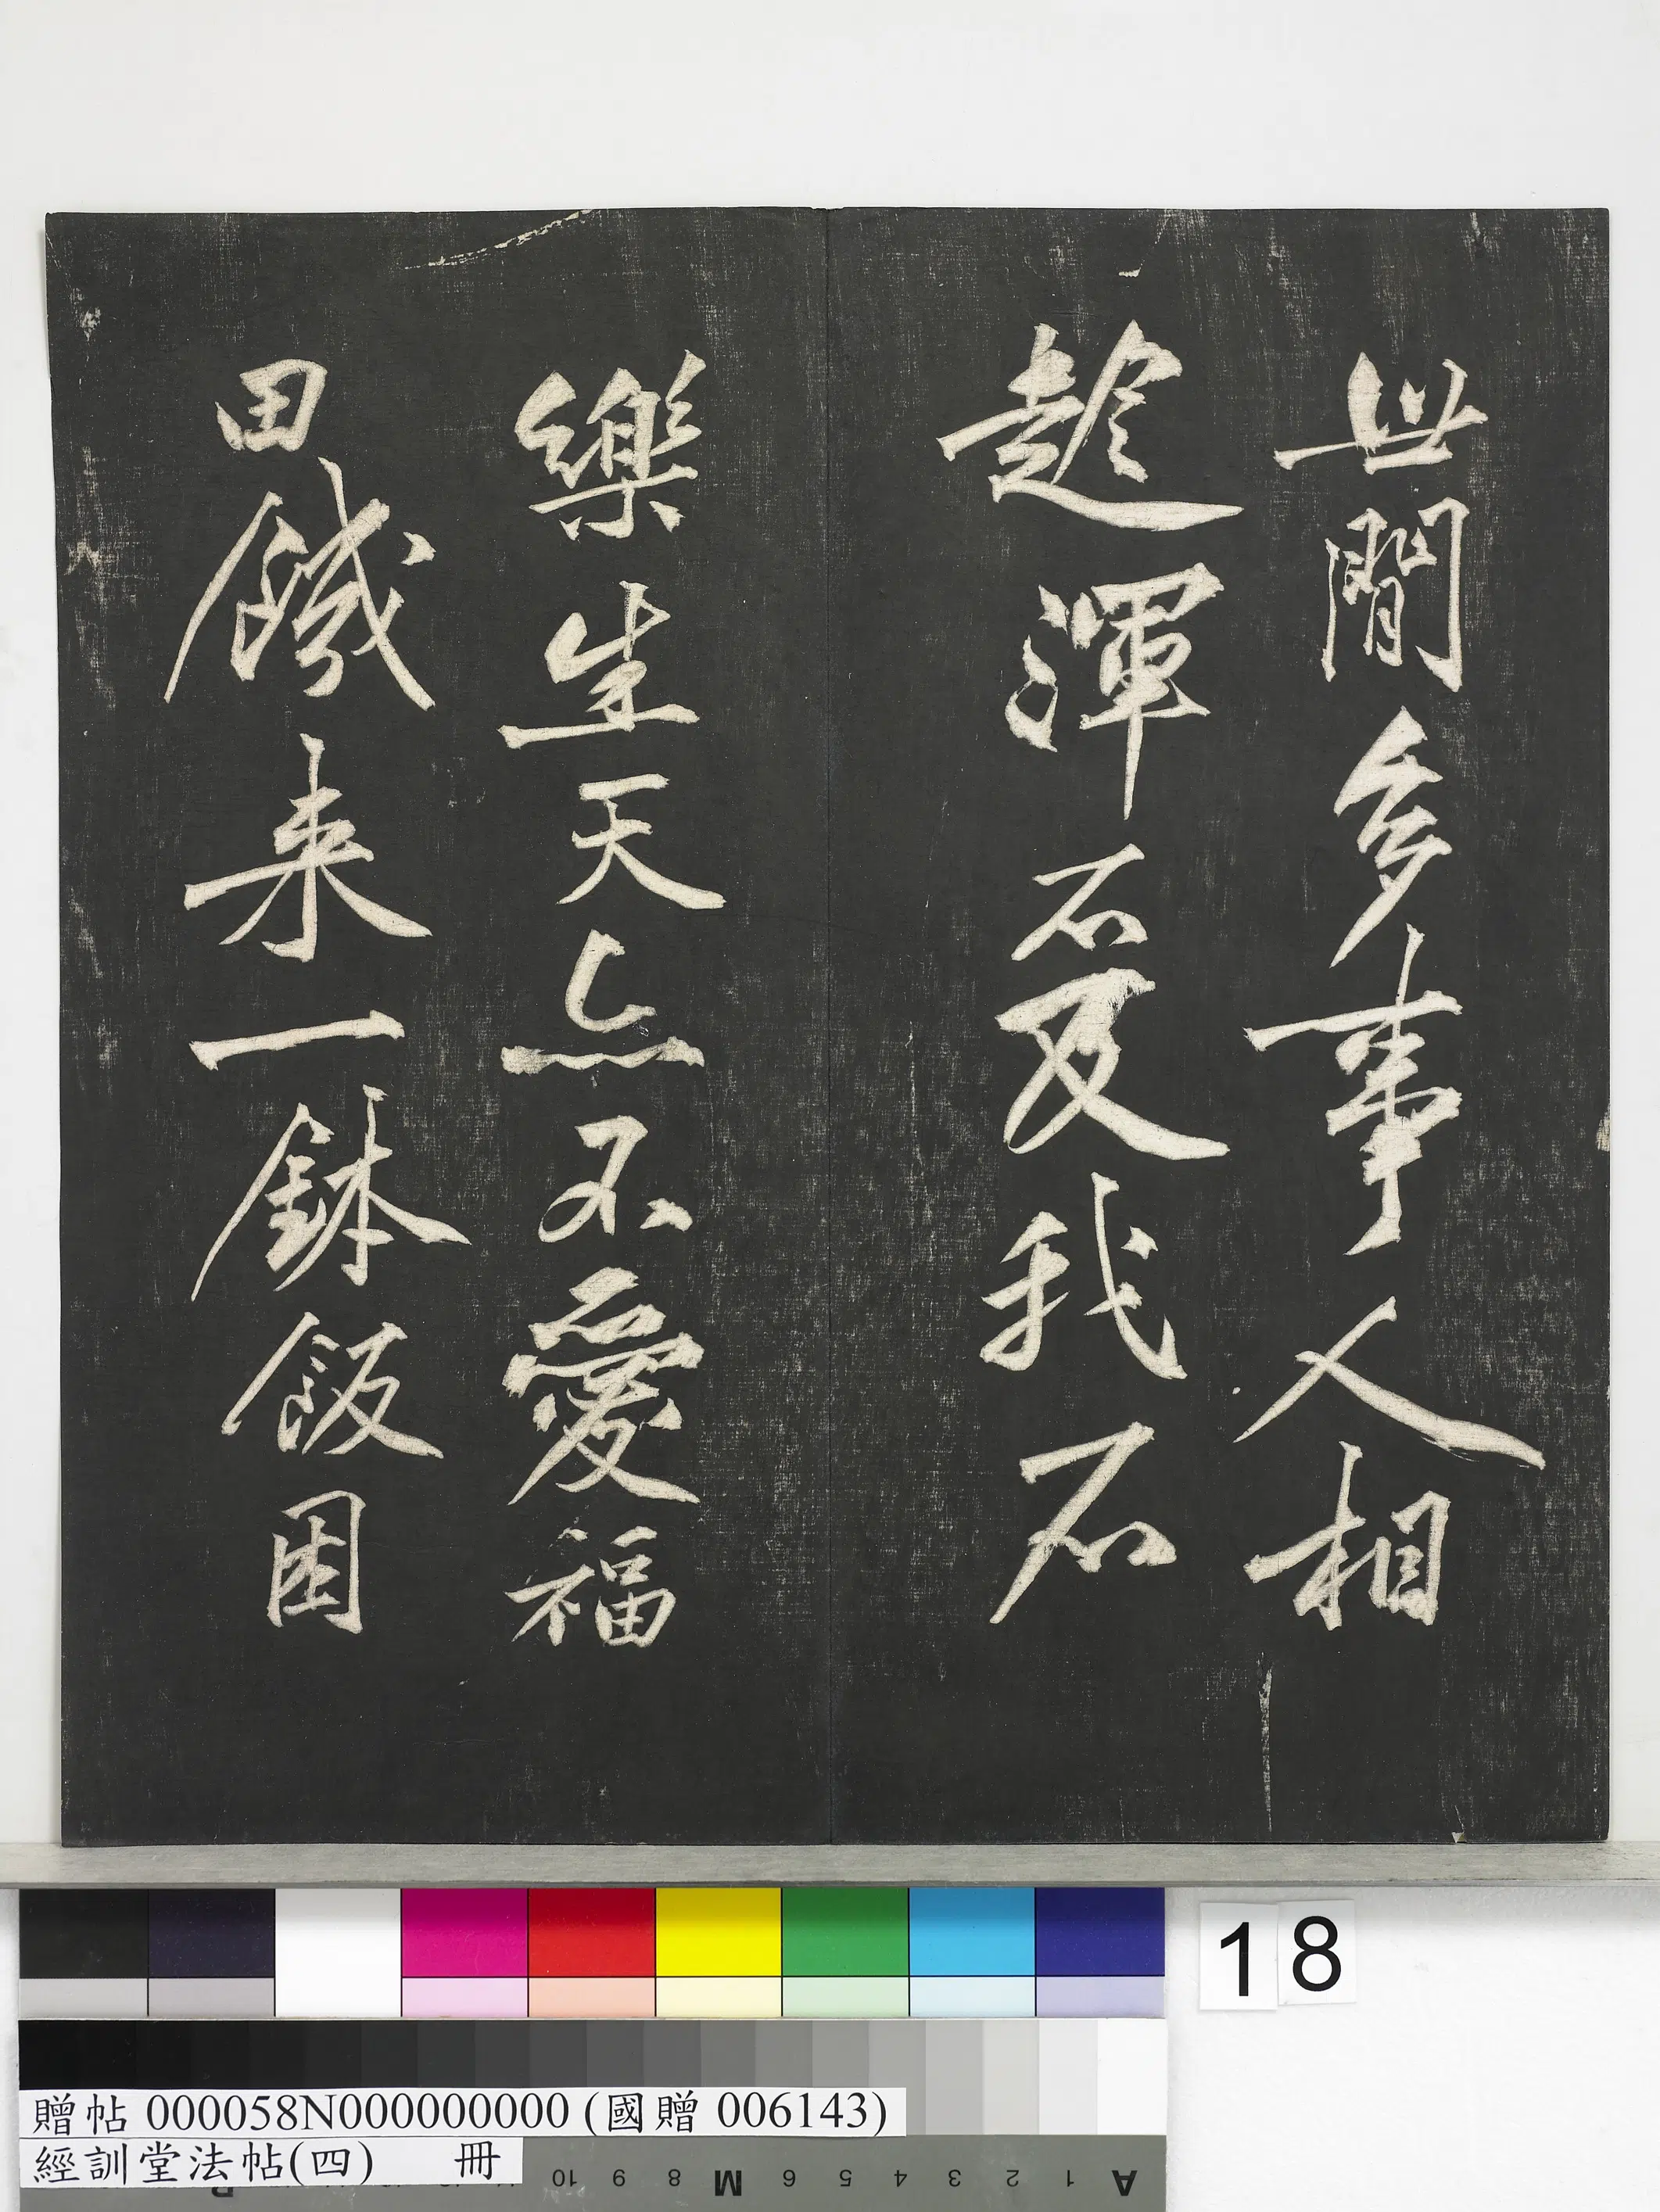 世間多事人相
趁渾不及我不
樂生天亦不愛福
田饑来一鉢飯困
18
贈帖 000058N000000000 (國贈 006143)
經訓堂法帖(四) 冊
A 1 2 3 4 5 6 M 8 9 10